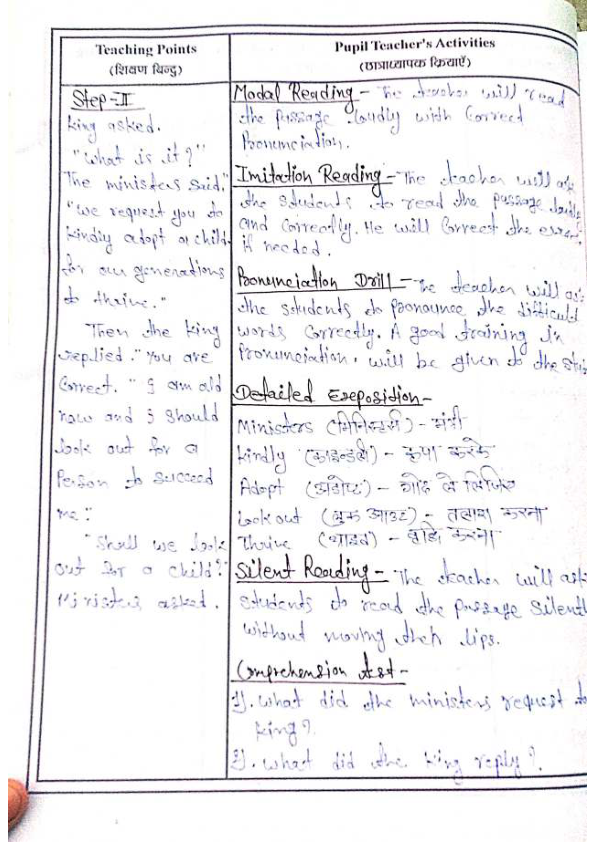 Teaching Points
(शिक्षण बिन्दु)
Step-II
king asked.
"What is it?"
The ministers said,
"we request you to
kindly adopt a child
for our generations
to thrive."
Then the king
replied. "You are
Correct. "I am old
now and I should
look out for a
Person to succeed
me."
"Shall we look
out for a child?"
Ministers asked.
Pupil Teacher's Activities
(छात्राध्यापक क्रियाएँ)
Modal Reading - The teacher will read
the passage loudly with Correct
Pronunciation.
Imitation Reading - The teacher will ask
the students to read the passage loudly
and Correctly. He will Correct the errors
if needed.
Pronunciation Drill - The teacher will ask
the students to pronounce the difficult
words Correctly. A good training in
Pronunciation. will be given to the
Detailed Exeposition -
Ministers (मिनिस्टर्स) - मंत्री
kindly (काइन्डली) - कृपा करके
Adopt (अडॉप्ट) - गोद ले लिजिए
Look out (लुक आउट) - तलाश करना
Thrive (थ्राइव) - करना
Silent Reading - The teacher will ask
students to read the passage Silent
without moving their lips.
Comprehension Test -
1). What did the ministers request to
king?
2). What did the king reply?